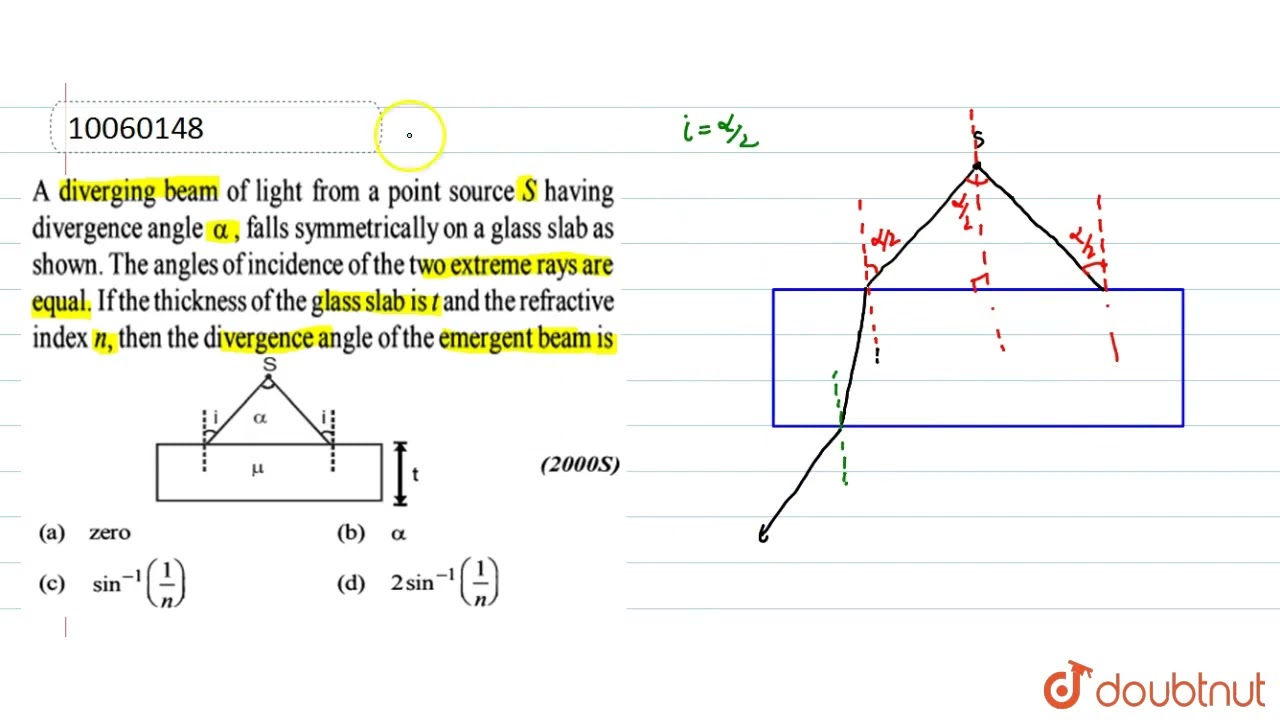 10060148
A diverging beam of light from a point source S having
divergence angle α, falls symmetrically on a glass slab as
shown. The angles of incidence of the two extreme rays are
equal. If the thickness of the glass slab is t and the refractive
index n, then the divergence angle of the emergent beam is
S
i α i
μ
t
(2000S)
(a) zero (b) α
(c) sin⁻¹(1/n) (d) 2 sin⁻¹(1/n)
i = α/2
S
α/2 α/2 α/2
doubtnut